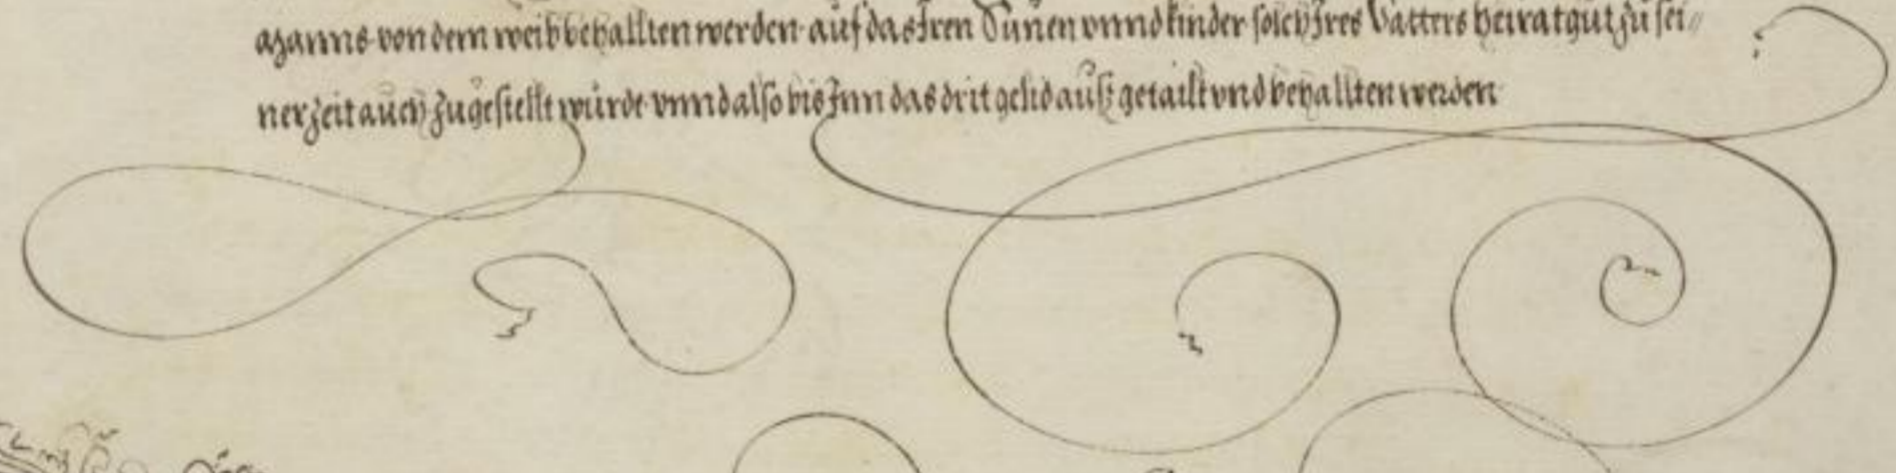 Manns von dem weib behallten werden auf das Iren Sunen vnnd kinder solch Ires Vatters heiratgut zu sei//
ner zeit auch zugestellt würde vnnd also bis Inn das drit gelid außgetailt vnd behallten werden